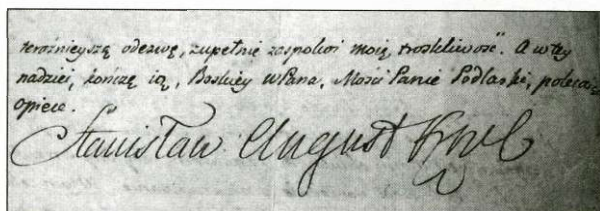 teroźnieyszą odezwę, zupełnie zaspokoi moię troskliwość. A w tey
nadziei, kończę ią, Boskiey WPana, Mości Panie Podlaski, polecaiąc
opiece.
Stanisław August Król